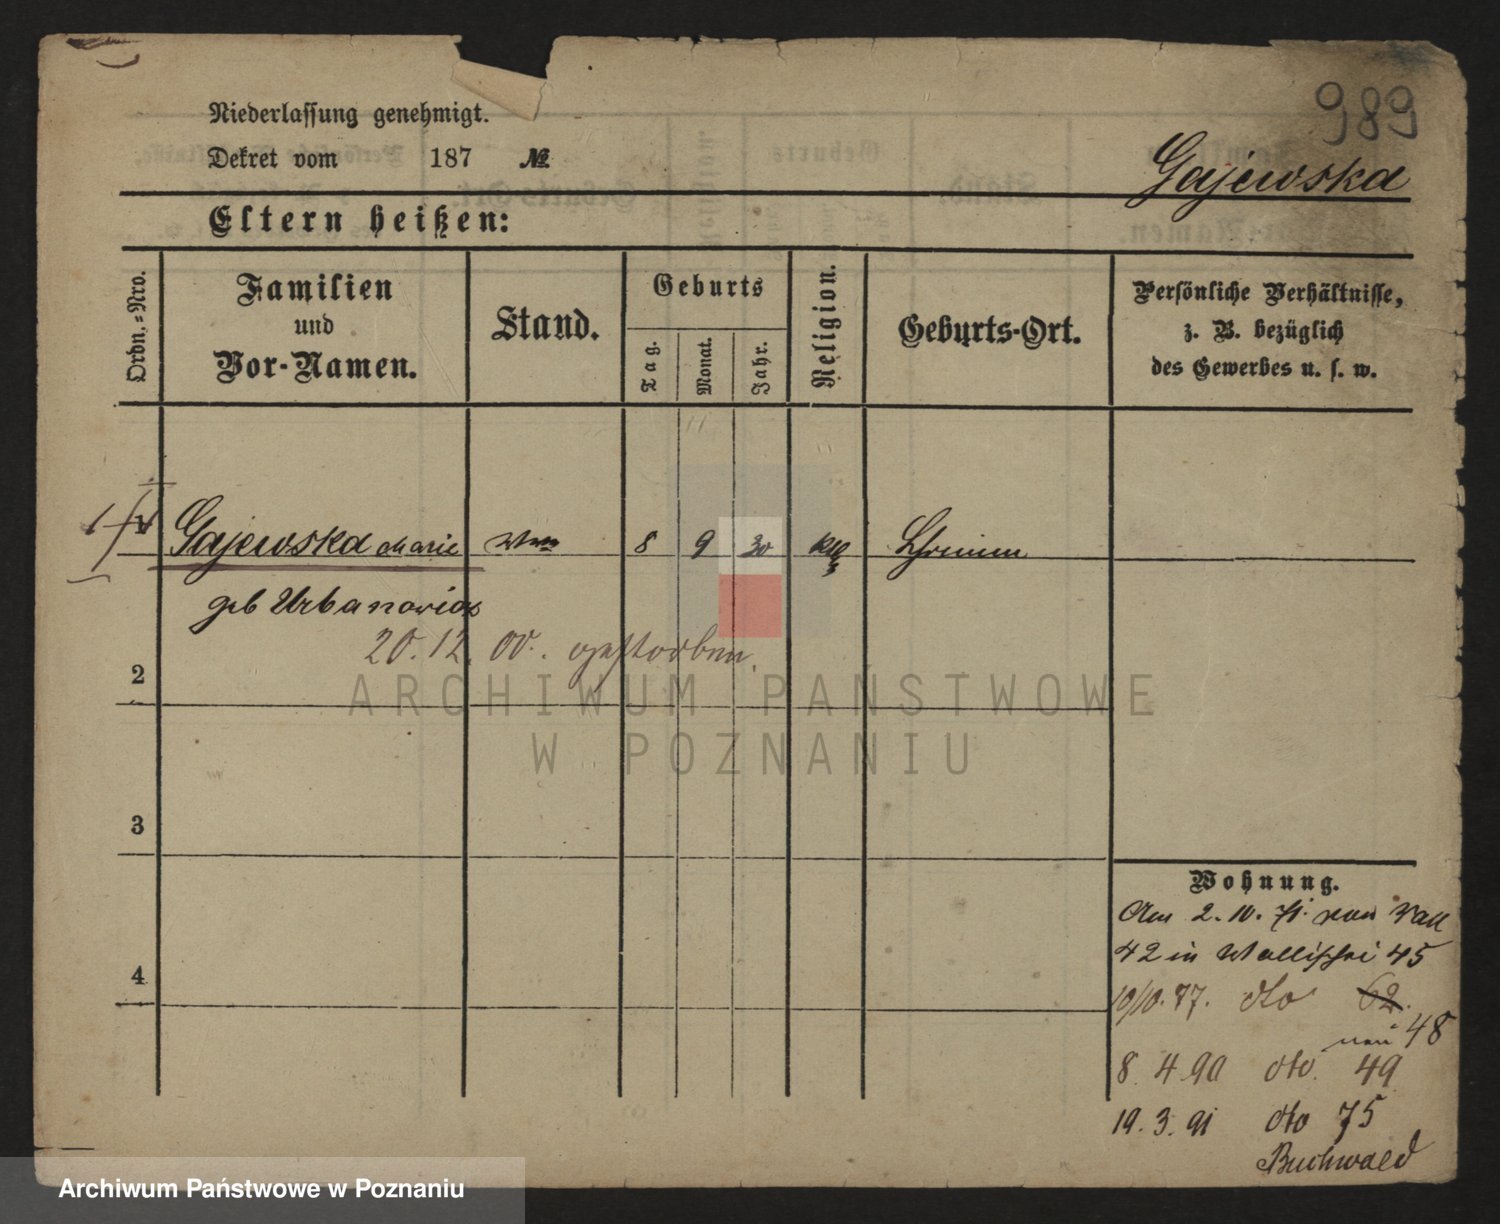 989
Niederlassung genehmigt.
Dekret vom 187 №
Gajewska
Eltern heißen:
Ordn.-Nro.
Familien und Vor-Namen.
Stand.
Geburts
Tag.
Monat.
Jahr.
Religion.
Geburts-Ort.
Persönliche Verhältnisse,
z. B. bezüglich
des Gewerbes u. s. w.
1 Gajewska Marie Wwe 8 9 30 kth Schrimm
geb Urbanowicz
20.12.00. gestorben.
2
ARCHIWUM PAŃSTWOWE
W POZNANIU
3
4
Wohnung.
Am 2.10.71. von Wall
42 in Wallischei 45
10/10.77. dto 62.
neu 48
8.4.90 dto. 49
19.3.91 dto 75
Buchwald
Archiwum Państwowe w Poznaniu